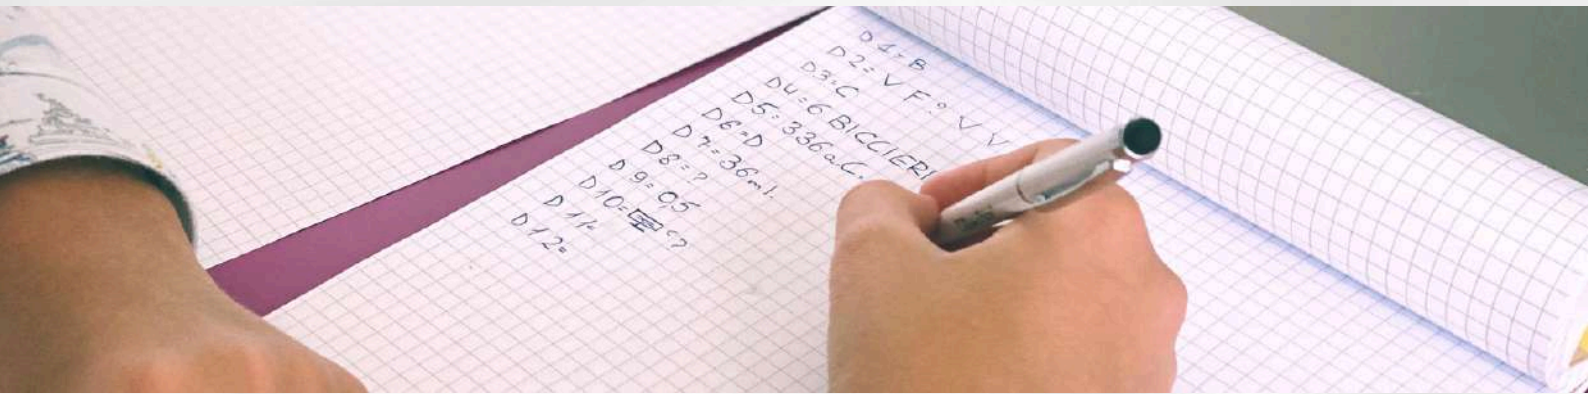 D1= B
D2= V F ? V V
D3= C
D4= 6 BICCIERI
D5= 336 a.C.
D6= D
D7= 36 ml.
D8= ?
D9= 0,5
D10= ?
D11=
D12=